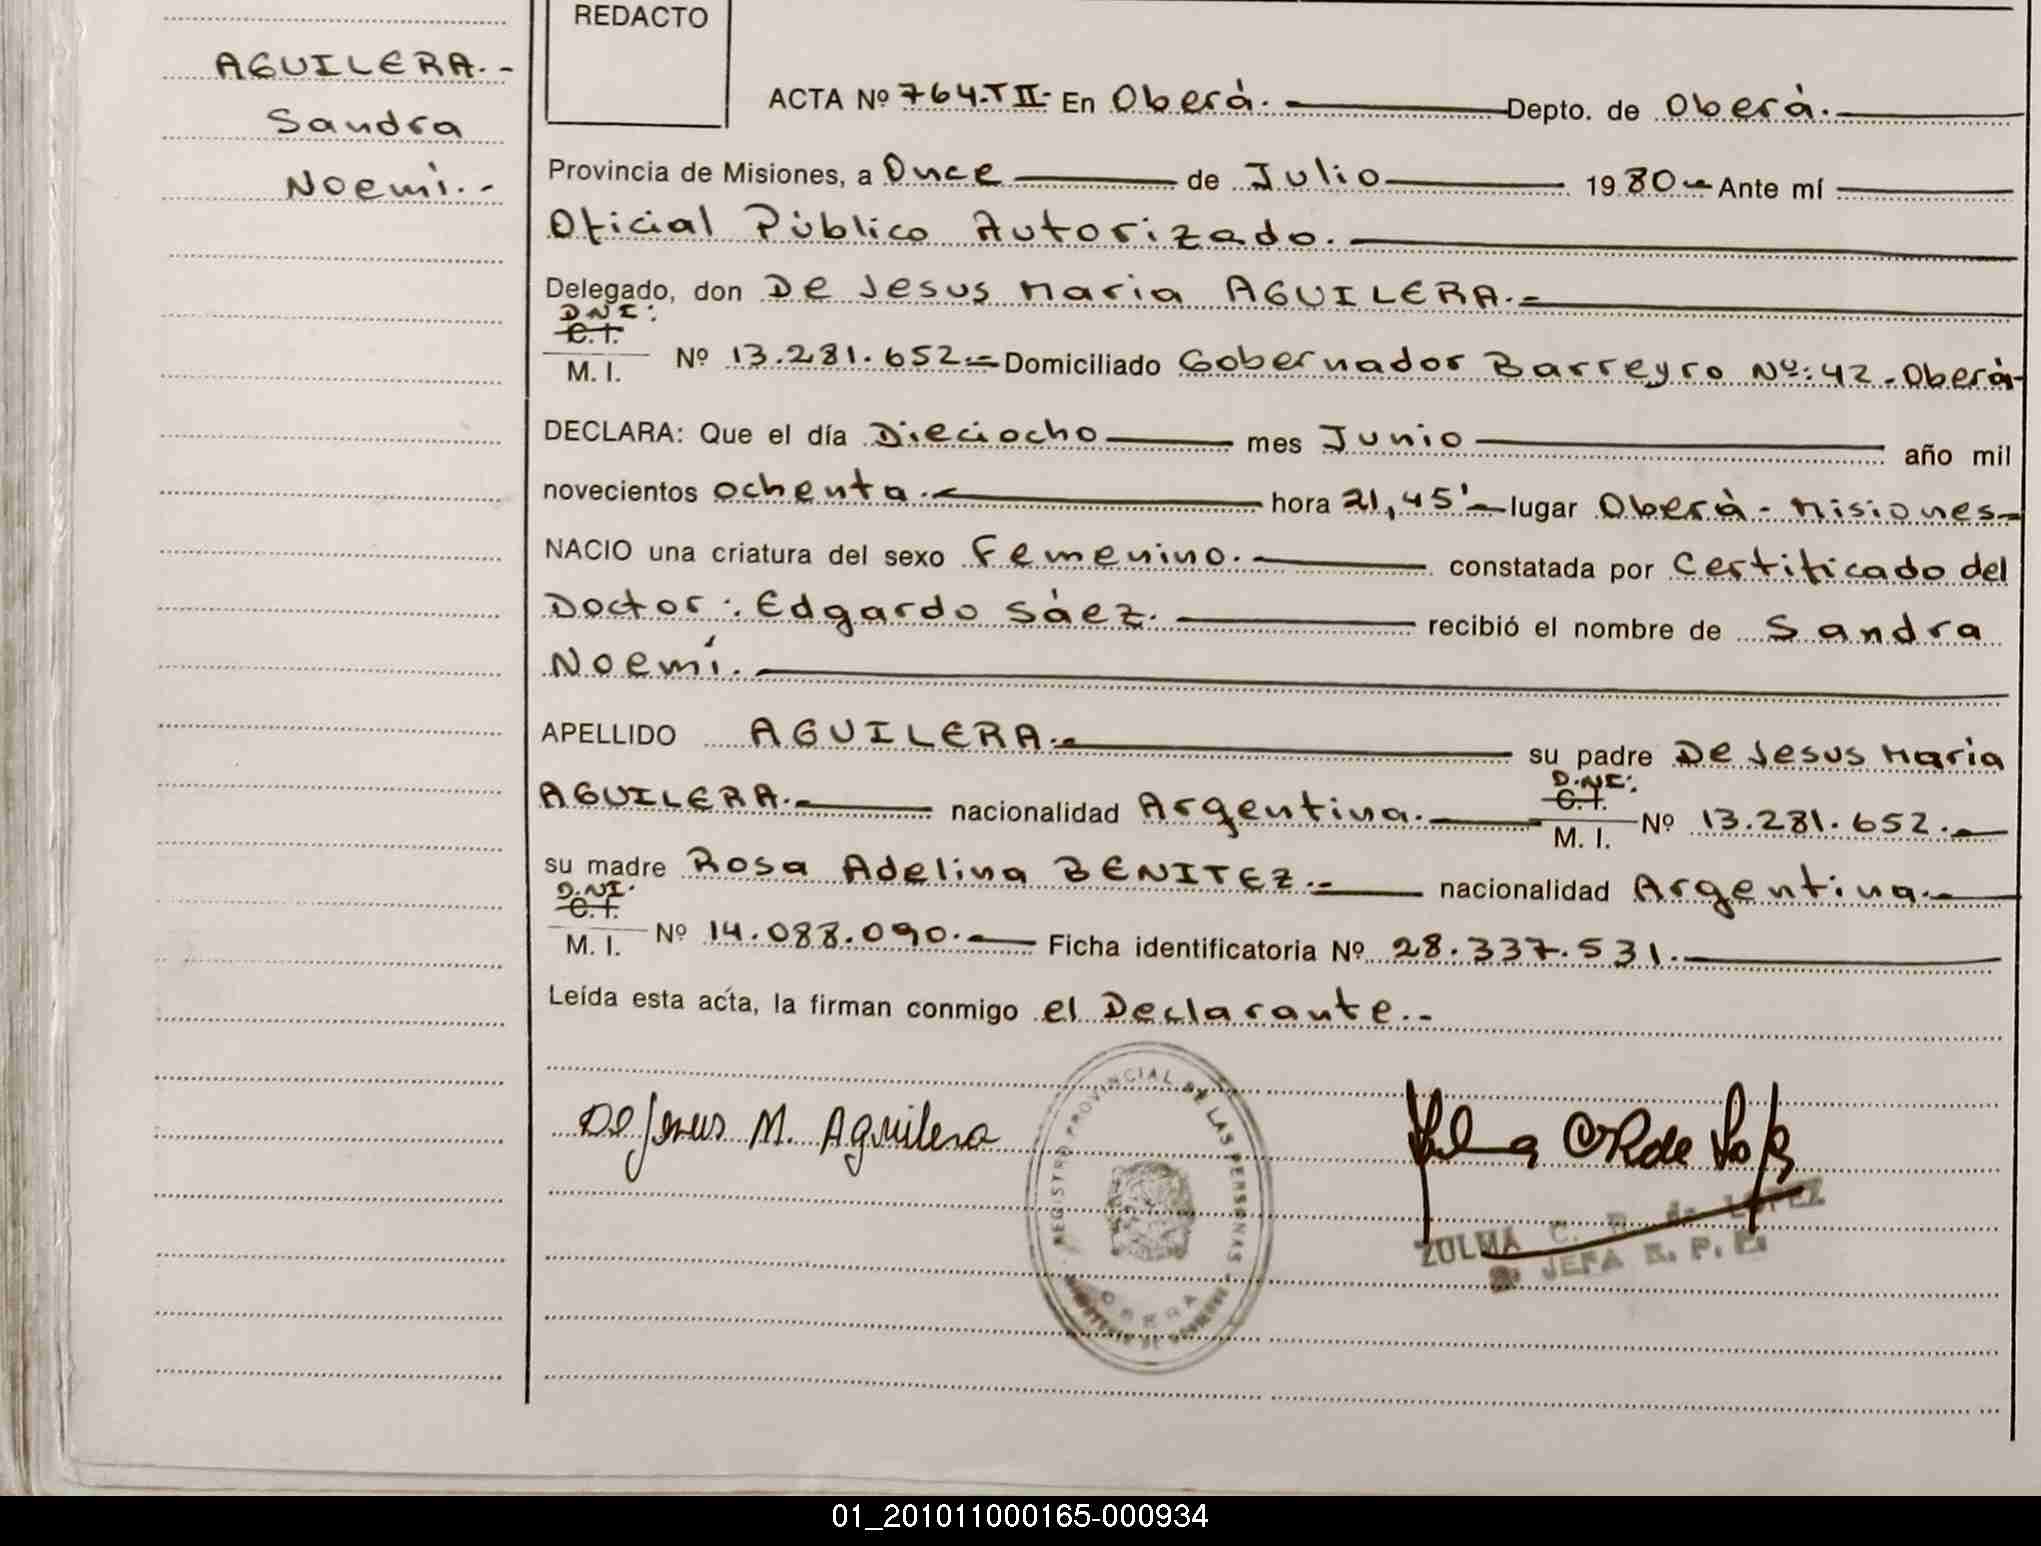 AGUILERA.-
Sandra
Noemi.-
REDACTO
ACTA Nº 764-TII- En Oberá. Depto. de Oberá.
Provincia de Misiones, a Once de Julio 1980 Ante mí
Oficial Público Autorizado.
Delegado, don De Jesus Maria AGUILERA.-
D.N.I:
C.I.
M. I. Nº 13.281.652.- Domiciliado Gobernador Barreyro Nº:42.-Oberá-
DECLARA: Que el día Dieciocho mes Junio año mil
novecientos ochenta.- hora 21,45'- lugar Oberá - Misiones-
NACIO una criatura del sexo Femenino. constatada por Certificado del
Doctor: Edgardo Sáez. recibió el nombre de Sandra
Noemí.
APELLIDO AGUILERA.- su padre De Jesus Maria
AGUILERA.- nacionalidad Argentina. D.NI: C.I. M. I. Nº 13.281.652.-
su madre Rosa Adelina BENITEZ.- nacionalidad Argentina.-
D.NI. C.I. M. I. Nº 14.088.090.- Ficha identificatoria Nº 28.337.531.
Leída esta acta, la firman conmigo el Declarante.-
De Jesus M. Aguilera
REGISTRO PROVINCIAL DE LAS PERSONAS
OBERA
MINISTERIO DE GOBIERNO
ZULMA C. R. de LOPEZ
JEFA R. P. P.
01_201011000165-000934